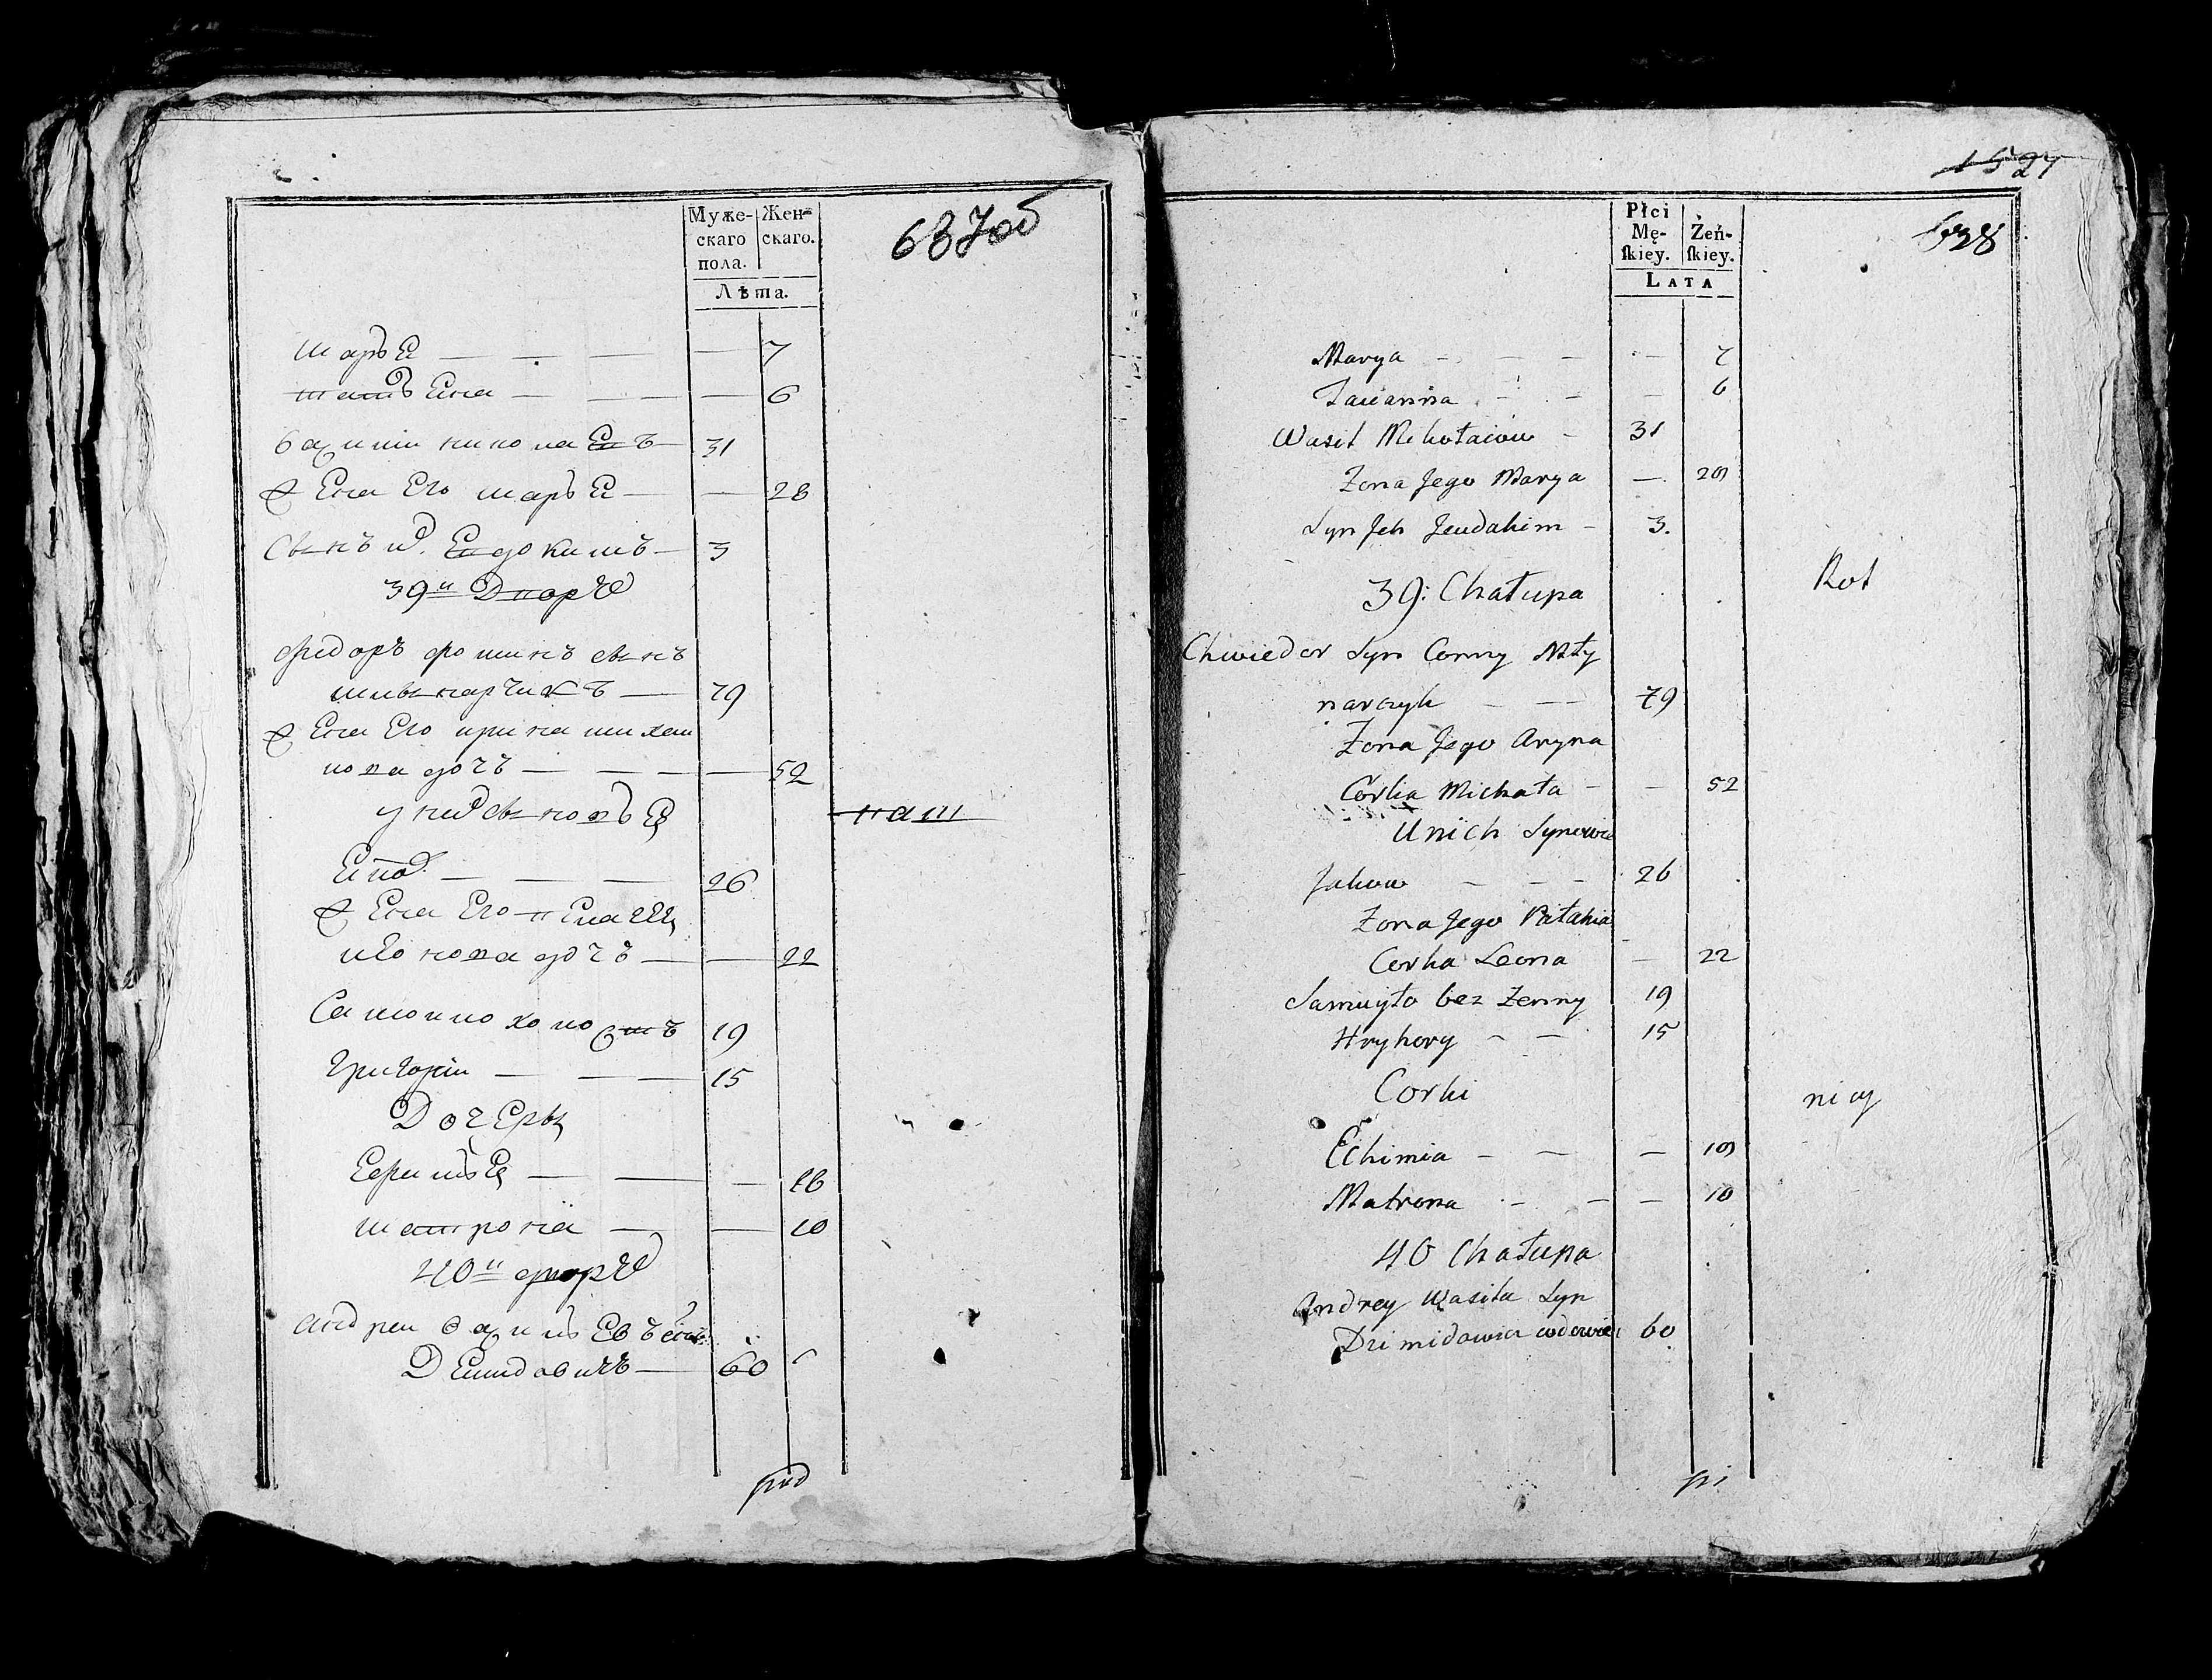 Муже-
скаго
пола.
Жен-
скаго.
Лѣта.
637об
марья 7
татьяна 6
василій николаевъ 31
жена Его марья 28
Сынъ их Евдокимъ 3
39й Дворъ
федоръ фоминъ сынъ
млынарчикъ 79
жена Его ирина михаи
лова дочь 52
у них сыновья
Яков 26
жена Его Пелагея
леонова дочь 22
Самоило холостъ 19
григорій 15
Дочери
Ефимья 18
матрона 10
наш
40й дворъ
андрей васильевъ сынъ
Демидовичъ 60
1527
638
Płci
Mę-
ſkiey.
Żeń-
ſkiey.
LATA
Marya 7
Tacianna 6
Wasil Mikołaiow 31
Zona Jego Marya 28
Syn Ich Jeudakim 3.
39: Chałupa
Rot
Chwiedor Syn Mły
narczyk 79
Zona Jego Aryna
Corka Michała 52
Unich Synowie
Jakow 26
Zona Jego Pałahia
Corka Leona 22
Samuyło bez Zenny 19
Hryhory 15
Corki
Echimia 18
Matrona 10
40 Chałupa
Andrey Wasila Syn
Dzimidowicz wdowiec 60